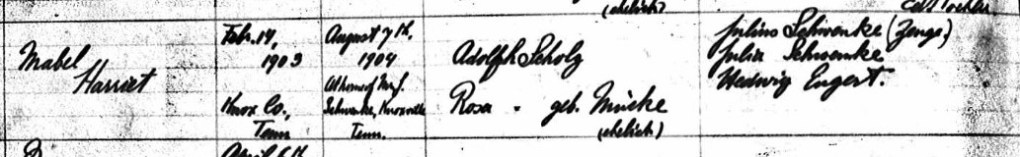 (ehelich)
Mabel
Harriet
Feb. 14,
1903
Knox Co.,
Tenn
August 7th,
1904
At home of Mr. J.
Schwenke, Knoxville
Tenn.
Adolph Scholz
Rosa " geb. Mücke
(ehelich)
Julius Schwenke (Zeuge)
Julia Schwenke
Hedwig Engert.